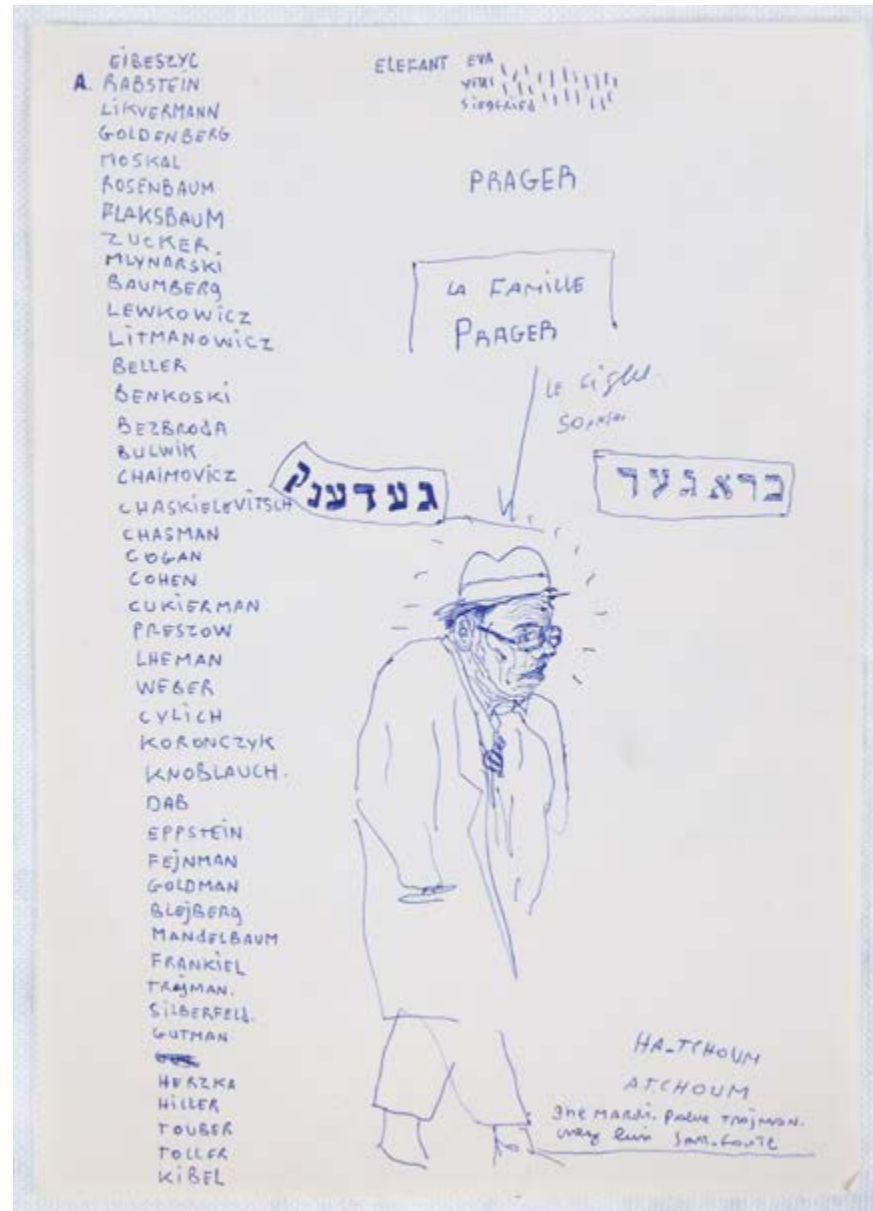 EIBESZYC
A. RABSTEIN
LIKVERMANN
GOLDENBERG
MOSKAL
ROSENBAUM
FLAKSBAUM
ZUCKER.
MLYNARSKI
BAUMBERG
LEWKOWICZ
LITMANOWICZ
BELLER
BENKOSKI
BEZBRODA
BULWIK
CHAIMOVICZ
CHASKIELEVITSCH
CHASMAN
COGAN
COHEN
CUKIERMAN
PRESZOW
LHEMAN
WEBER
CYLICH
KORONCZYK
KNOBLAUCH.
DAB
EPPSTEIN
FEJNMAN
GOLDMAN
BLEJBERG
MANDELBAUM
FRANKIEL
TRAJMAN.
SILBERFELD.
GUTMAN
HERZKA
HILLER
TOUBER
TOLLER
KIBEL
ELEFANT EVA
SIEGFRIED
PRAGER
LA FAMILLE
PRAGER
LE
געדענק
בראגער
HA-TCHOUM
ATCHOUM
MARDI. TRAJMAN.
lui